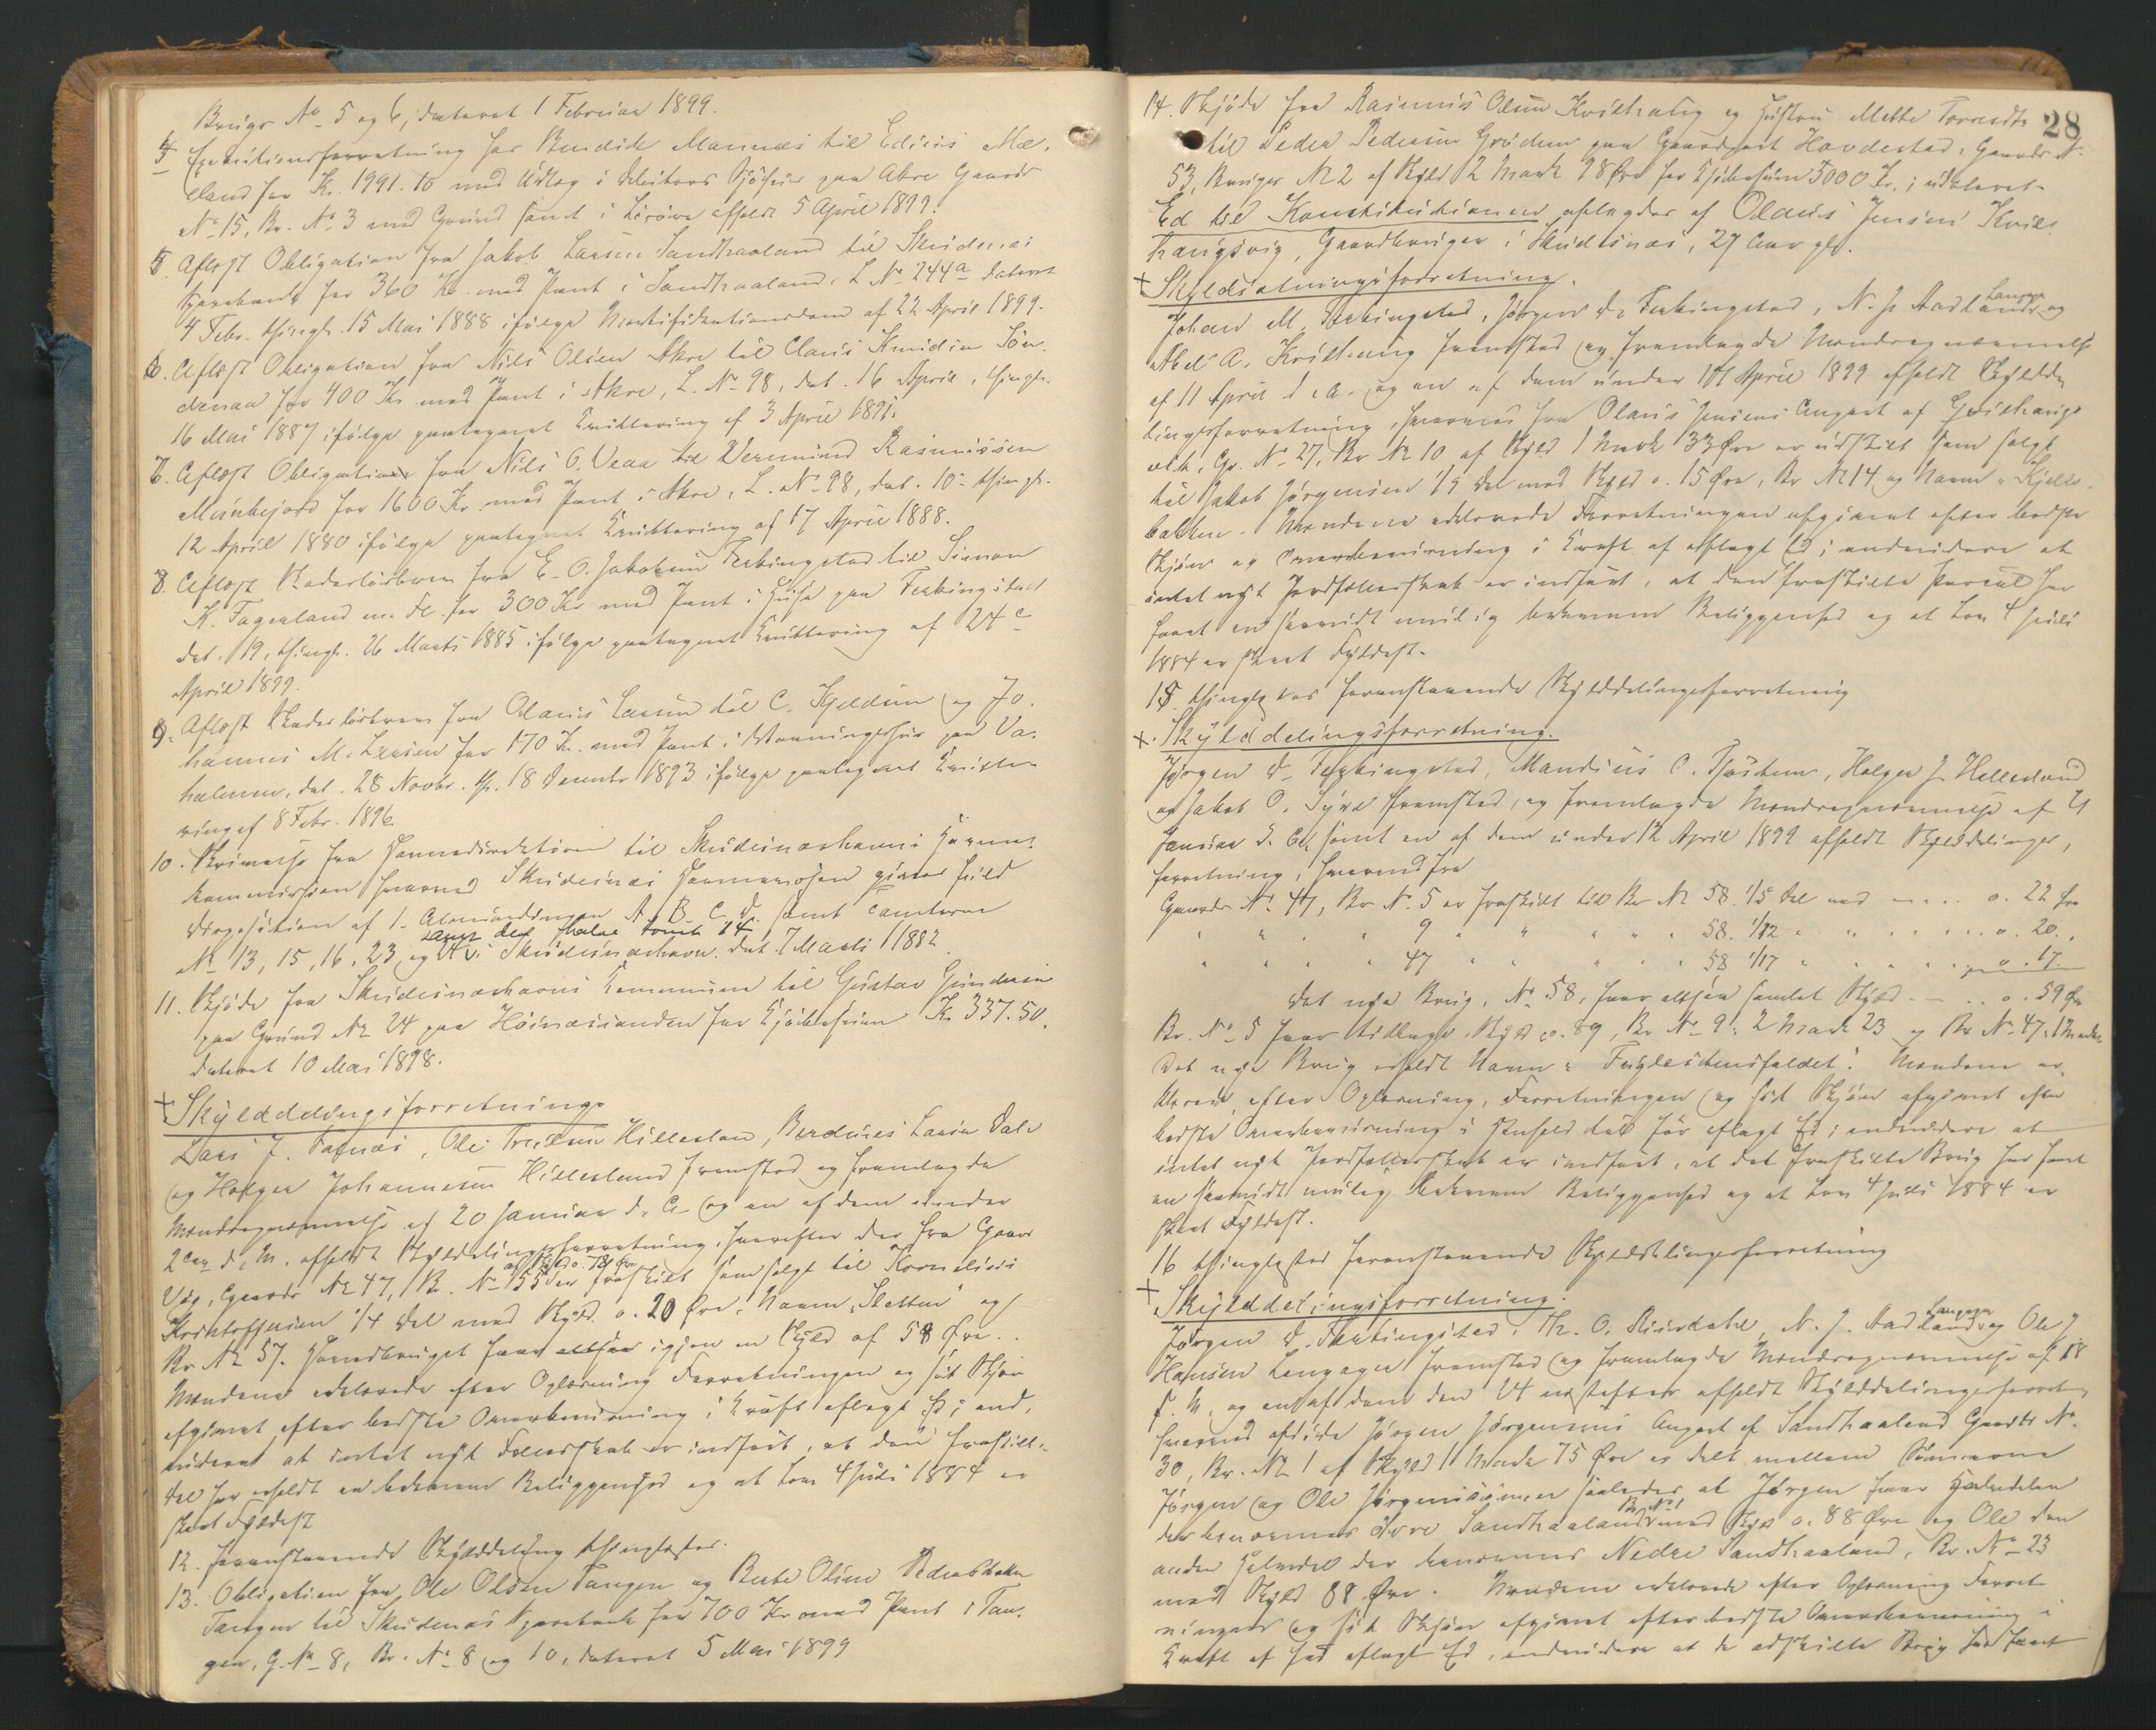 Brugs No 5 og 6, dateret 1 Februar 1899.
4 Executionsforretning for Bendik Mannæs til Edius Mæ-
land for Kr. 1991.10 med Udlæg i Debitors Sjøhus paa Akre Gaards
No 15, Br. No 3 med Grund samt i afholdt 5 April 1899.
5. Aflyst Obligation fra Jakob Larsen Sandhaaland til Skudenæs
Sparebank for 360 Kr. med Pant i Sandhaaland, L No 244a dateret
4 Febr. thingl. 15 Mai 1888 ifølge Mortifikationsdom af 22 April 1899.
6. Aflyst Obligation fra Nils Olsen Akre til Claus Knudsen Søn-
denaa for 400 Kr med Pant i Akre, L. No 98, dat. 16 April, thingl.
16 Mai 1887 ifølge paategnet Kvittering af 3 April 1891.
7. Aflyst Obligation fra Nils O. Veaa til Vermund Rasmussen
Munkejord for 1600 Kr. med Pant i Akre, L. No 98, dat. 10 thingl.
12 April 1880 ifølge paategnet Kvittering af 17 April 1888.
8. Aflyst Skadesløsbrev fra E. O. Jakobsen Ferkingstad til Simon
K. Fagerland m. Fl. for 300 Kr med Pant i Huse paa Ferkingstad
dat. 19, thingl. 26 Marts 1885 ifølge paategnet Kvittering af 24de
April 1899.
9. Aflyst Skadesløsbrev fra Olaus Larsen til C. Kjeldsen og Jo-
hannes M. Larsen for 170 Kr. med Pant i Vaaningshus paa Va-
holmen, dat. 28 Novbr. th. 18 Decembr 1893 ifølge paategnet Kvitte-
ring af 8 Febr. 1896.
10. Skrivelse fra Havnedirektøren til Skudesnæshavns Havne-
kommission hvorved Skudesnæs Havnevæsen gives fuld
Disposition af 1. Almindingen A. B. C. D. samt Tomterne
samt den halve Tomt 14
No 13, 15, 16, 23, og i Skudesnæshavn. dat. 7 Marts 1882
11. Skjøde fra Skudesnæshavns Kommune til Gustav Gundersen
paa Grund No 24 paa Høinæssanden for Kjøbesum Kr 337.50.
dateret 10 Mai 1898.
+ Skylddelingsforretning.
Lars J. Falnæs, Ole Troelsen Hilleslan, Berdines Larsen Dale
og Holger Johannesen Hillesland fremstod og fremlagde
Mændsopnævnelse af 20 Januar d. A. og en af dem under
2den d. M. afholdt Skylddelingsforretning, hvorefter der fra Gaard
af Skyld o. 78 Øre
Vaag, Gaards No 47, Br. No 155 er fraskilt som solgt til Kornelius
Kristoffersen 1/4 Del med Skyld o. 20 Øre, Navn "Sletten" og
Br No 57. Hovedbruget har altsaa igjen en Skyld af 58 Øre.
Mændene erklærede efter Oplæsning Forretningen og sit Skjøn
afgivet efter bedste Overbevisning i Kraft aflagt Ed; end-
videre at intet nyt Fælledsskab er indført, at den fraskilte
Del har erholdt en bekvem Beliggenhed og at Lov 4 Juli 1884 er
skeet Fyldest
12. Foranstaaende Skylddeling thinglæstes.
13. Obligation fra Ole Olsen Tangen og Berte Olsen
Tangen til Skudenæs Sparebank for 700 Kr med Pant i Tan-
gen, G. No 8, Br. No 8 og 10, dateret 5 Mai 1899
28
14. Skjøde fra Rasmus Olsen Kvilhaug og Hustru Mette Torredtr
til Peder Pedersen Grødem paa Gaardpart Hovdestad, Gaards No
53, Bruges No 2 af Skyld 2 Mark 98 Øre for Kjøbesum 5000 Kr. ; udateret.
Ed til Konstitutionen aflagdes af Olaus Jensen Kvil-
haugsvig, Gaardbruger i Skudesnæs, 27 Aar gl.
+ Skyldsætningsforretning.
Langø
Johan M. Ferkingstad, Jørgen D. Ferkingstad, N. J. Aadland og
Abel A. Kvilhaug fremstod og fremlagde Mændsopnævnelse
af 11 April d. A. og en af dem under 18 April 1899 afholdt Skyldde-
lingsforretning, hvorved fra Olaus Jensens Anpart af Kvilhaug-
vik, Gr. No 27, Br No 10 af Skyld 1 Mark 33 Øre er udskilt som solgt
til Jakob Jørgensen 1/9 Del med Skyld o. 15 Øre, Br No 14 og Navn "Kjelds-
bakken. Mændene erklærede Forretningen afgivet efter bedste
Skjøn og Overbevisning i Kraft af aflagt Ed; endvidere at
intet nyt Jordfællesskab er indført, at den fraskilte Parcel har
faaet en saavidt mulig bekvem Beliggenhed og at Lov 4 Juli
1884 er skeet Fyldest.
15. thinglæstes foranstaaende Skylddelingsforretning
+ Skylddelingsforretning.
Jørgen D. Ferkingstad, Mandius C. Tjøsthem, Holger J. Hillesland
og Jakob O. Syre fremstod, og fremlagde Mændsopnævnelse af 21
Januar d. A. samt en af dem under 12 April 1899 afholdt Skylddelings-
forretning, hvorved fra
Gaards No 47, Br No 5 er fraskilt til Br No 58. 1/5 Del med — o. 22 Øre
" " " " 9 " " " " 58. 1/12 " " — o. 20. "
" " " " 47 " " " " 58 1/17 " " — o. 17.
Det nye Brug, No 58, faar altsaa samlet Skyld — o. 59 Øre
Br. No 5 har tilbage Skyld o. 89, Br No 9: 2 Mark 23 og Br No 47: 1 Mark
Det nye Brug erholdt Navn "Fuglesteensfaldet." Mændene er-
klærede, efter Oplæsning, Forretningen og sit Skjøn afgivet efter
bedste Overbevisning i Henhold til før aflagt Ed; endvidere at
intet nyt Jordfællesskab er indført, at det fraskilte Brug har faaet
en saavidt mulig bekvem Beliggenhed og at Lov 4 Juli 1884 er
skeet Fyldest.
16 thinglæstes foranstaaende Skylddelingsforretning
+ Skylddelingsforretning.
Langager
Jørgen D. Ferkingstad, Th. O. Risdahl, N. J. Aadland og Ole J
Hansen Langager fremstod og fremlagde Mændsopnævnelse af 18
f. M. og en af dem den 24 næstefter afholdt Skylddelingsforretn.
hvorved afdøde Jørgen Jørgensens Anpart af Sandhaaland Gaards No
30, Br. No 1 af Skyld 1 Mark 75 Øre er delt mellem Sønnerne
Jørgen og Ole Jørgenssønner saaledes at Jørgen faar Halvdelen
Br. No 1
der benævnes Øvre Sandhaaland med Skyld o. 88 Øre og Ole den
anden Halvdel der benævnes Nedre Sandhaaland, Br. No 23
med Skyld 88 Øre. Mændene erklærede efter Oplæsning Forret-
ningen og sit Skjøn afgivet efter bedste Overbevisning i
Kraft af før aflagt Ed, endvidere at de adskilte Brug har faaet